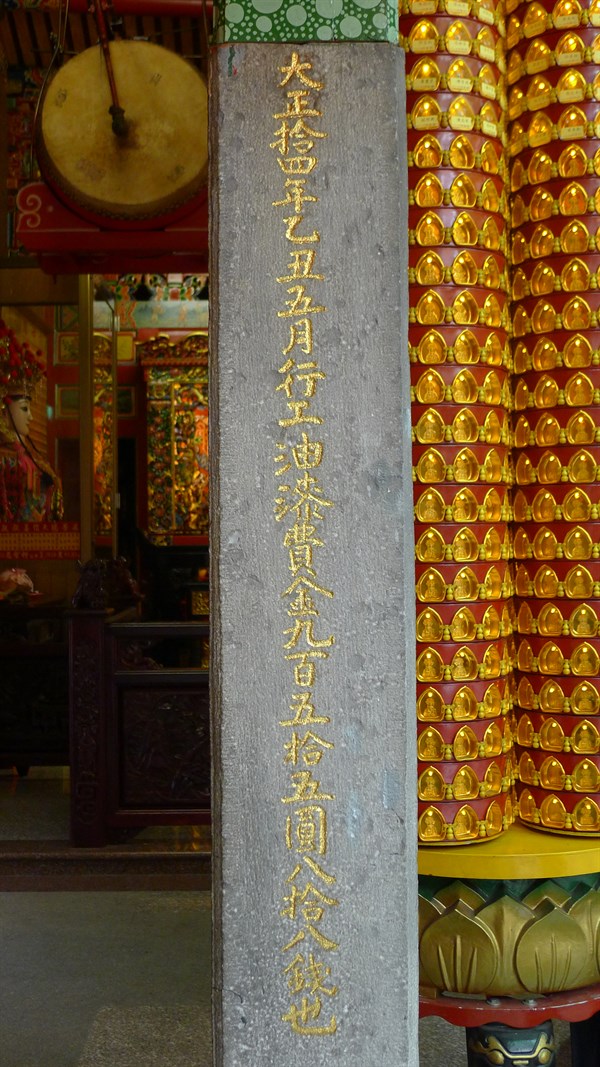 大正拾四年乙丑五月行工油漆費金九百五拾五圓八拾八錢也